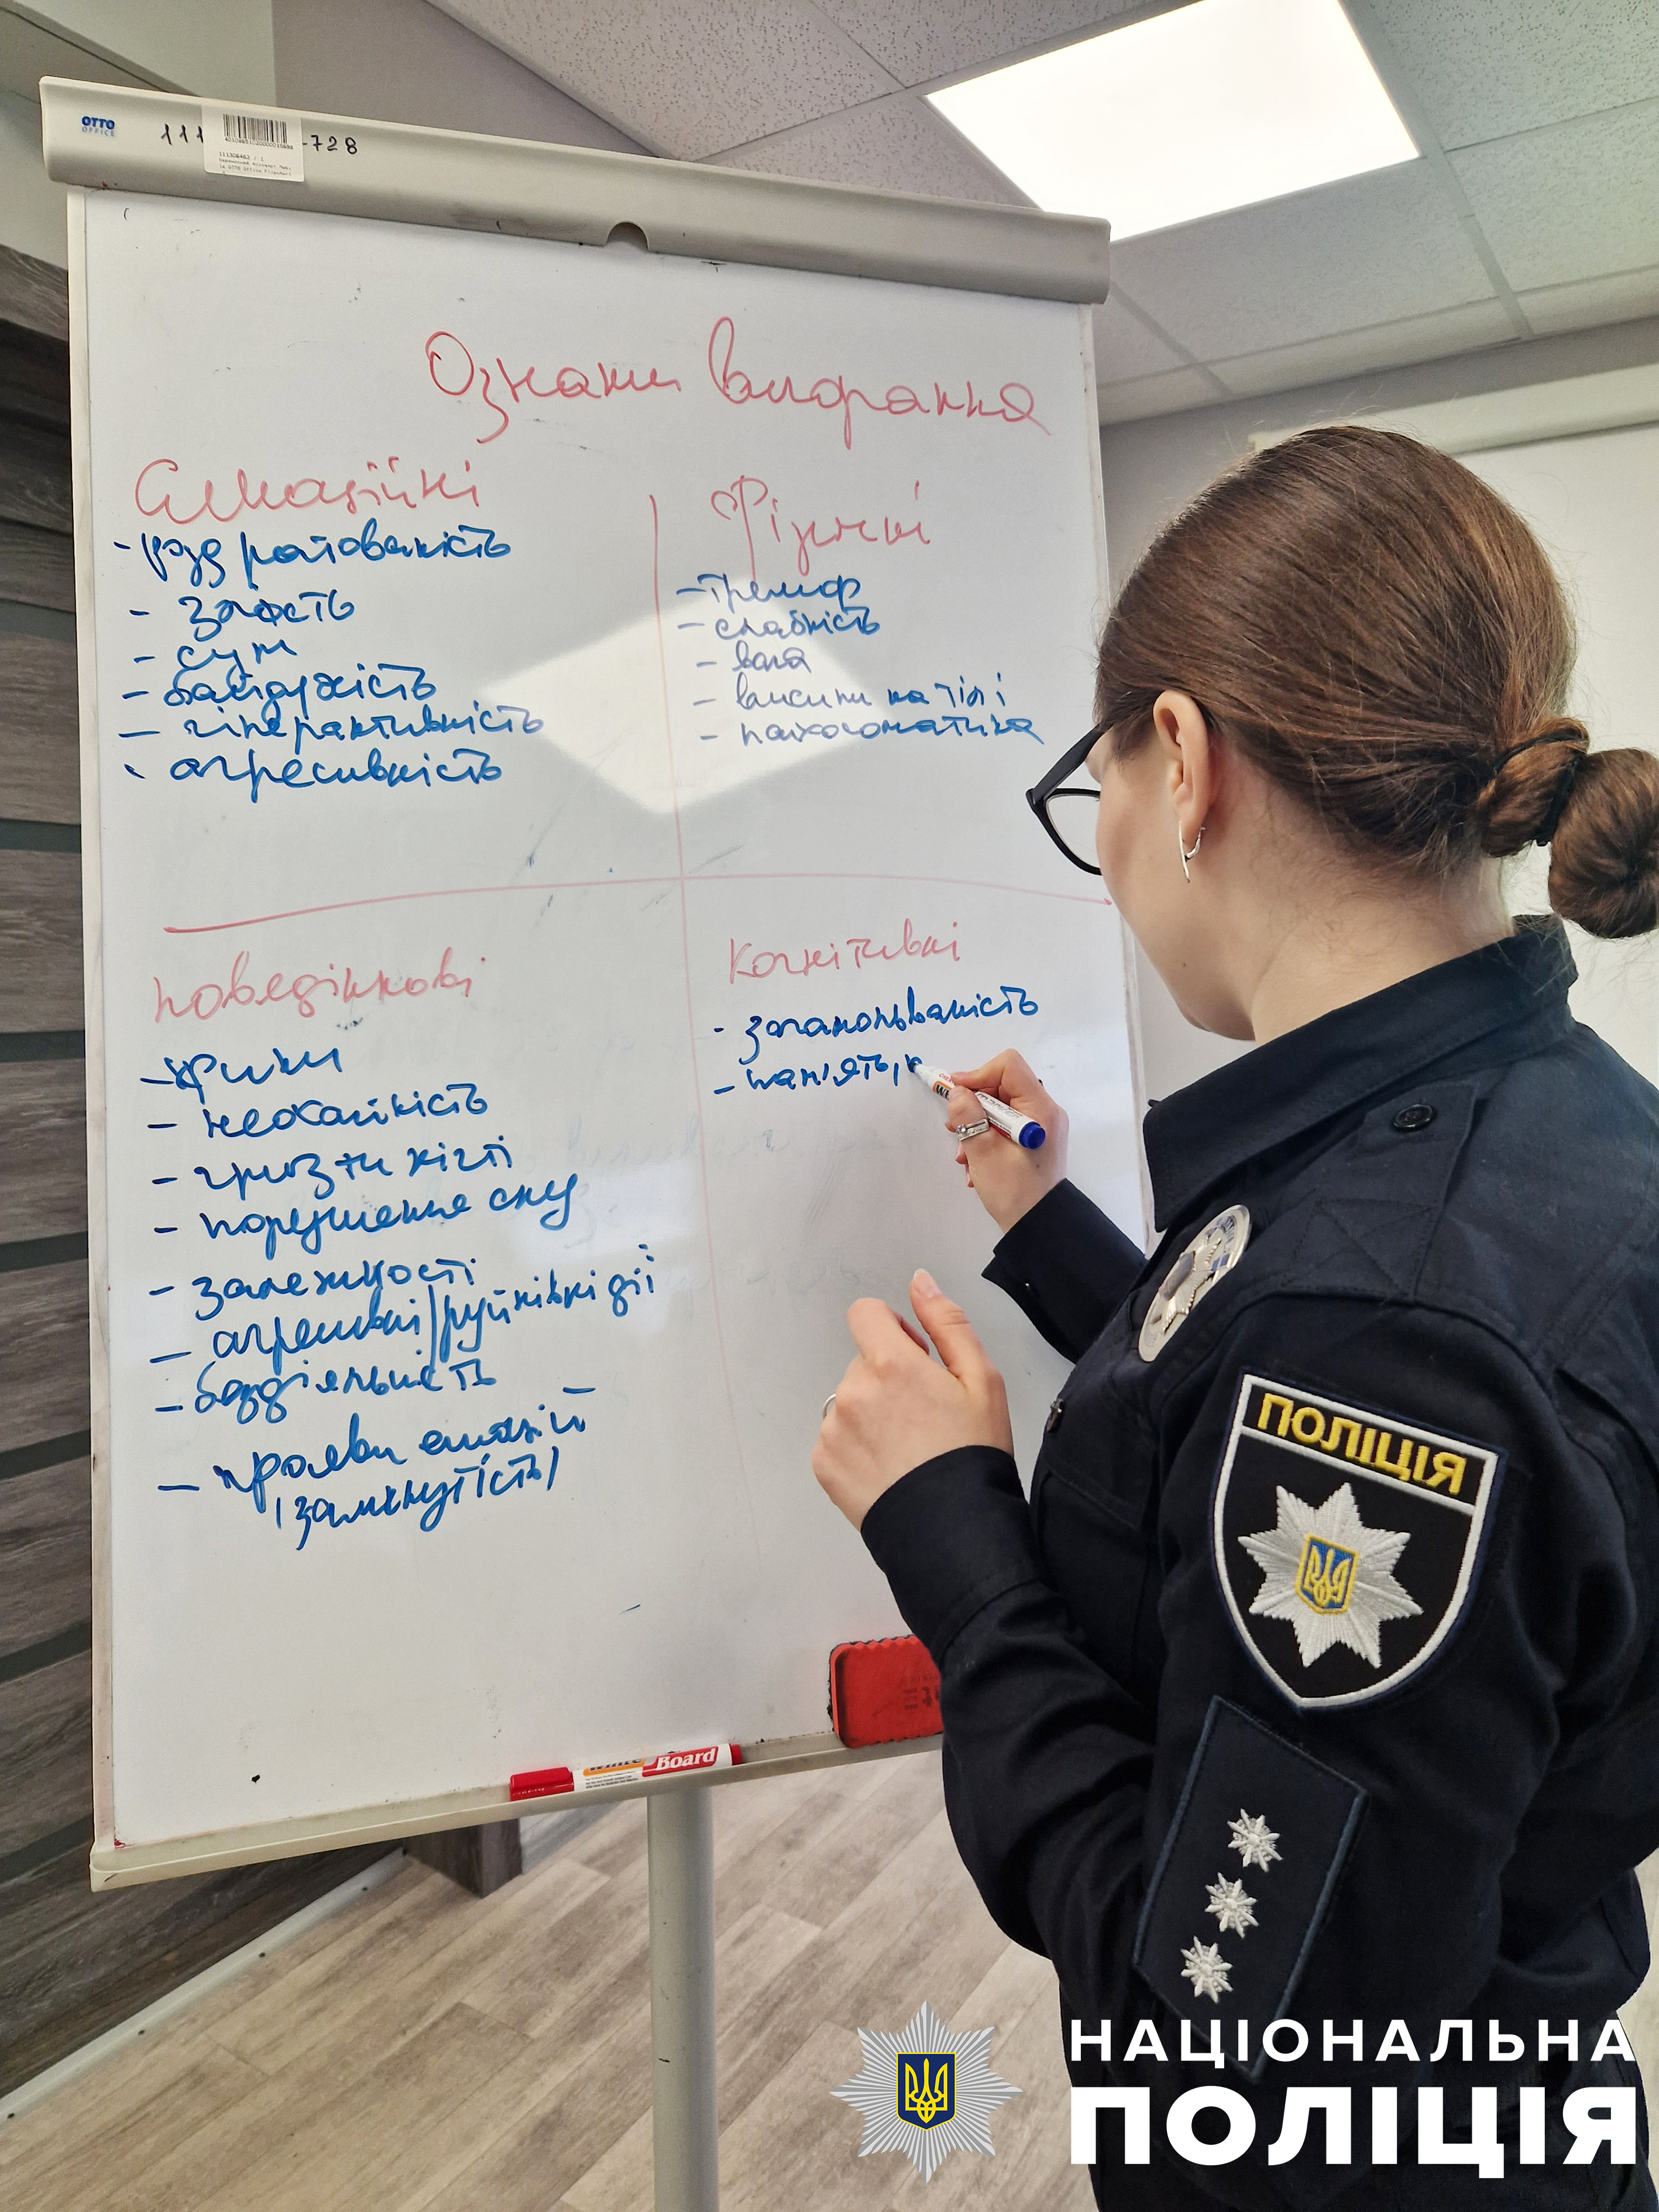 OTTO
OFFICE
111
-728
Ознаки вигорання
Емоційні
- роздратованість
- злість
- сум
- байдужість
- гіперактивність
- агресивність
Фізичні
- тремор
- слабкість
- вага
- висипи на тілі
- психосоматика
поведінкові
- крики
- неохайність
- гризти нігті
- порушення сну
- залежності
- агресивні/руйнівні дії
- бездіяльність
- прояви емоцій
(замкнутість)
Когнітивні
- загальмованість
- пам'ять, к
White Board
ПОЛІЦІЯ
НАЦІОНАЛЬНА
ПОЛІЦІЯ